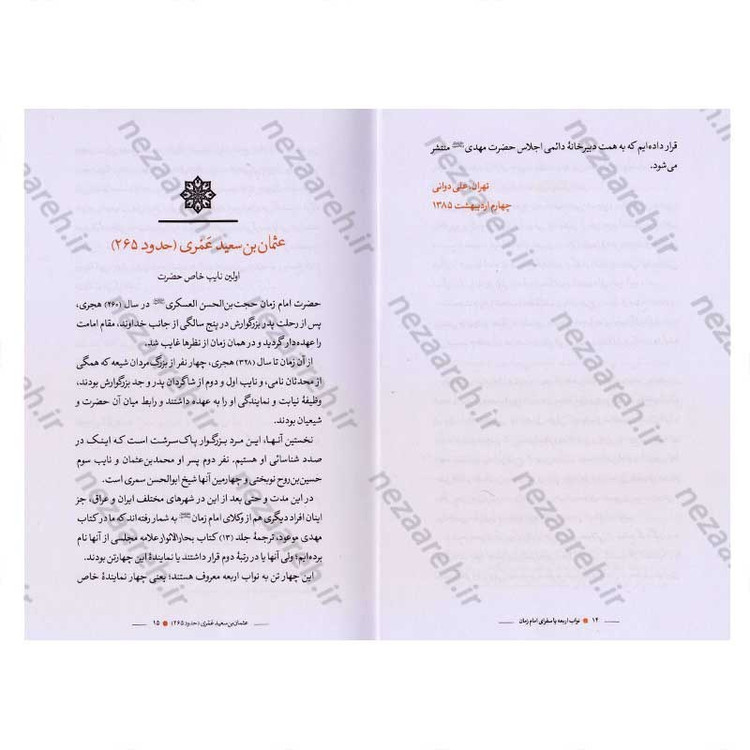 قرار داده‌ایم که به همت دبیرخانهٔ دائمی اجلاس حضرت مهدی منتشر
می‌شود.
تهران، علی دوانی
چهارم اردیبهشت ۱۳۸۵
۱۴ نواب اربعه یا سفرای امام زمان
عثمان بن سعید عَمْری (حدود ۲۶۵)
اولین نایب خاص حضرت
حضرت امام زمان حجت‌بن‌الحسن العسکری در سال (۲۶۰) هجری،
پس از رحلت پدر بزرگوارش در پنج سالگی از جانب خداوند، مقام امامت
را عهده‌دار گردید و در همان زمان از نظرها غایب شد.
از آن زمان تا سال (۳۲۸) هجری، چهار نفر از بزرگ‌مردان شیعه که همگی
از محدثان نامی، و نایب اول و دوم از شاگردان پدر و جد بزرگوارش بودند،
وظیفهٔ نیابت و نمایندگی او را به عهده داشتند و رابط میان آن حضرت و
شیعیان بودند.
نخستین آنها، این مرد بزرگوار پاک‌سرشت است که اینک در
صدد شناسائی او هستیم. نفر دوم پسر او محمدبن‌عثمان و نایب سوم
حسین‌بن‌روح نوبختی و چهارمین آنها شیخ ابوالحسن سمری است.
در این مدت و حتی بعد از این در شهرهای مختلف ایران و عراق، جز
اینان افراد دیگری هم از وکلای امام زمان به شمار رفته‌اند که ما در کتاب
مهدی موعود، ترجمهٔ جلد (۱۳) کتاب بحارالانوار علامه مجلسی از آنها نام
برده‌ایم؛ ولی آنها یا در رتبهٔ دوم قرار داشتند یا نمایندهٔ این چهارتن بودند.
این چهار تن به نواب اربعه معروف هستند؛ یعنی چهار نمایندهٔ خاص
عثمان بن سعید عَمْری (حدود ۲۶۵) ۱۵
nezaareh.ir
nezaareh.ir
nezaareh.ir
nezaareh.ir
nezaareh.ir
nezaareh.ir
nezaareh.ir
nezaareh.ir
nezaareh.ir
nezaareh.ir